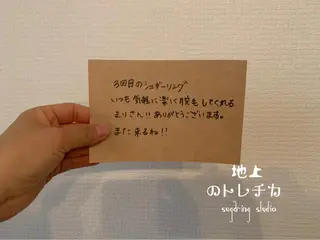 3回目のシュガーリング
いつも気軽に楽に脱毛してくれる
まりさん!!ありがとうございます。
また来るね!!
地上
のトレチカ
sugaring studio